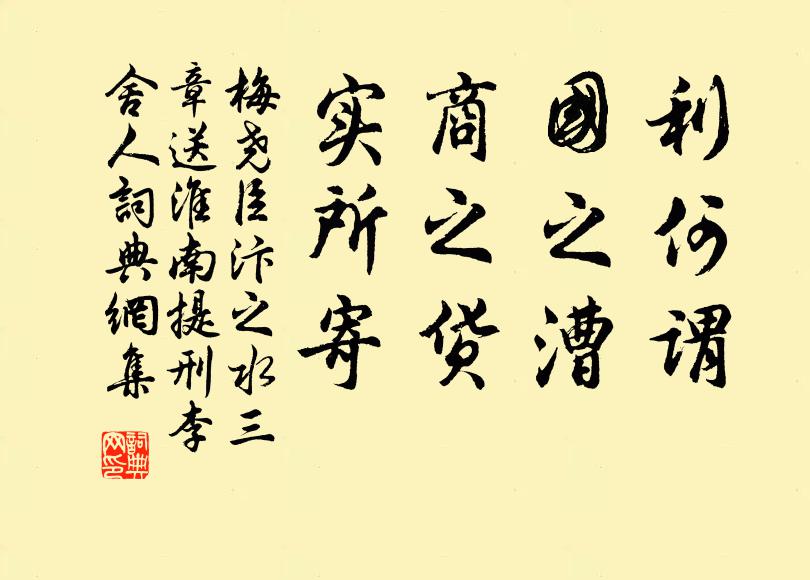 利何谓
國之漕
商之货
实所寄
梅尧臣汴之水三
章送淮南提刑李
舍人詞典網集
詞典
网印